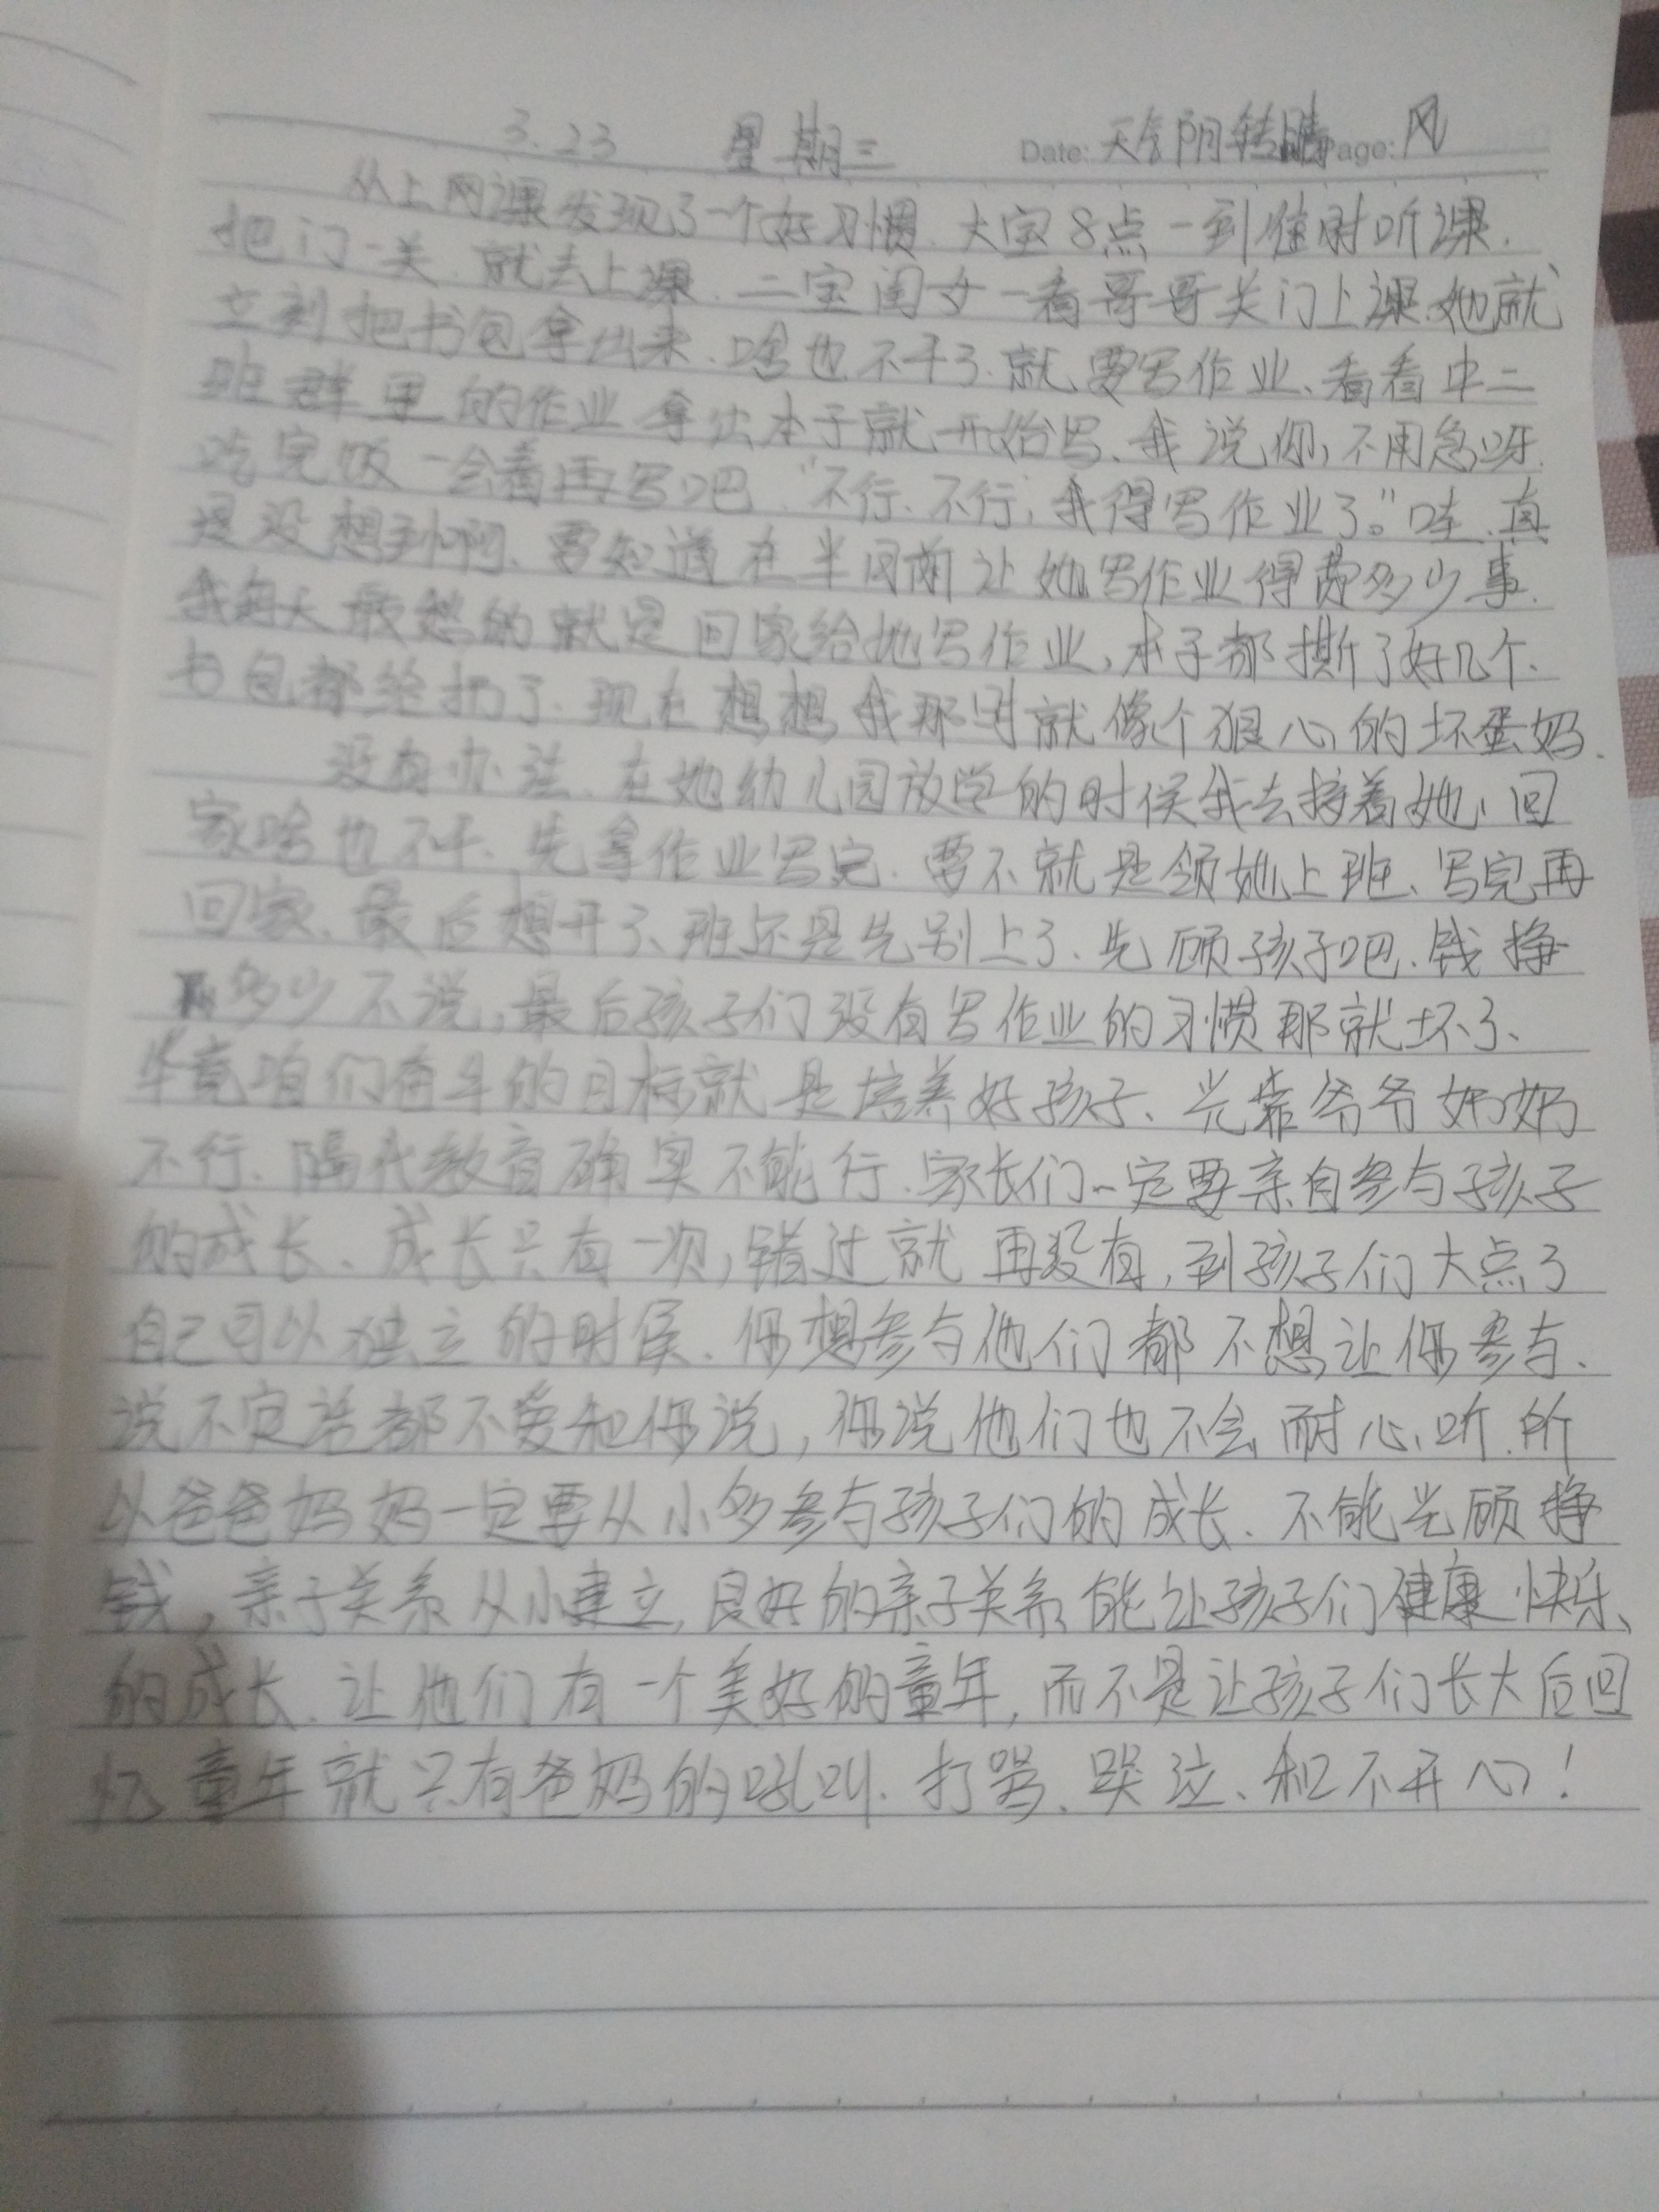 3.23 星期三 Date: 天气阴转晴 Page: 风
从上网课发现了一个好习惯.大宝8点一到准时听课.
把门一关.就去上课.二宝闺女一看哥哥关门上课.她就
立刻把书包拿出来.啥也不干了.就要写作业、看看中二
班群里的作业拿出本子就开始写、我说你,不用急呀.
吃完饭一会看再写吧."不行、不行,我得写作业了。"哇.真
是没想到啊、要知道在半月前让她写作业得费多少事.
我每天最愁的就是回家给她写作业,本子都撕了好几个、
书包都给扔了.现在想想我那时就像个狠心的坏蛋妈.
没有办法、在她幼儿园放学的时候我去接着她,回
家啥也不干、先拿作业写完.要不就是领她上班、写完再
回家、最后想开了、班还是先别上了、先顾孩子吧.钱挣
多少不说,最后孩子们没有写作业的习惯那就坏了、
毕竟咱们奋斗的目标就是培养好孩子、光靠爷爷奶奶
不行.隔代教育确实不能行.家长们一定要亲自参与孩子
的成长、成长只有一次,错过就再没有,到孩子们大点了
自己可以独立的时候.你想参与他们都不想让你参与.
说不定话都不爱和你说,你说他们也不会耐心听.所
以爸爸妈妈一定要从小多参与孩子们的成长.不能光顾挣
钱,亲子关系从小建立,良好的亲子关系能让孩子们健康快乐、
的成长.让他们有一个美好的童年,而不是让孩子们长大后回
忆童年就只有爸妈的吼叫.打骂、哭泣、和不开心!